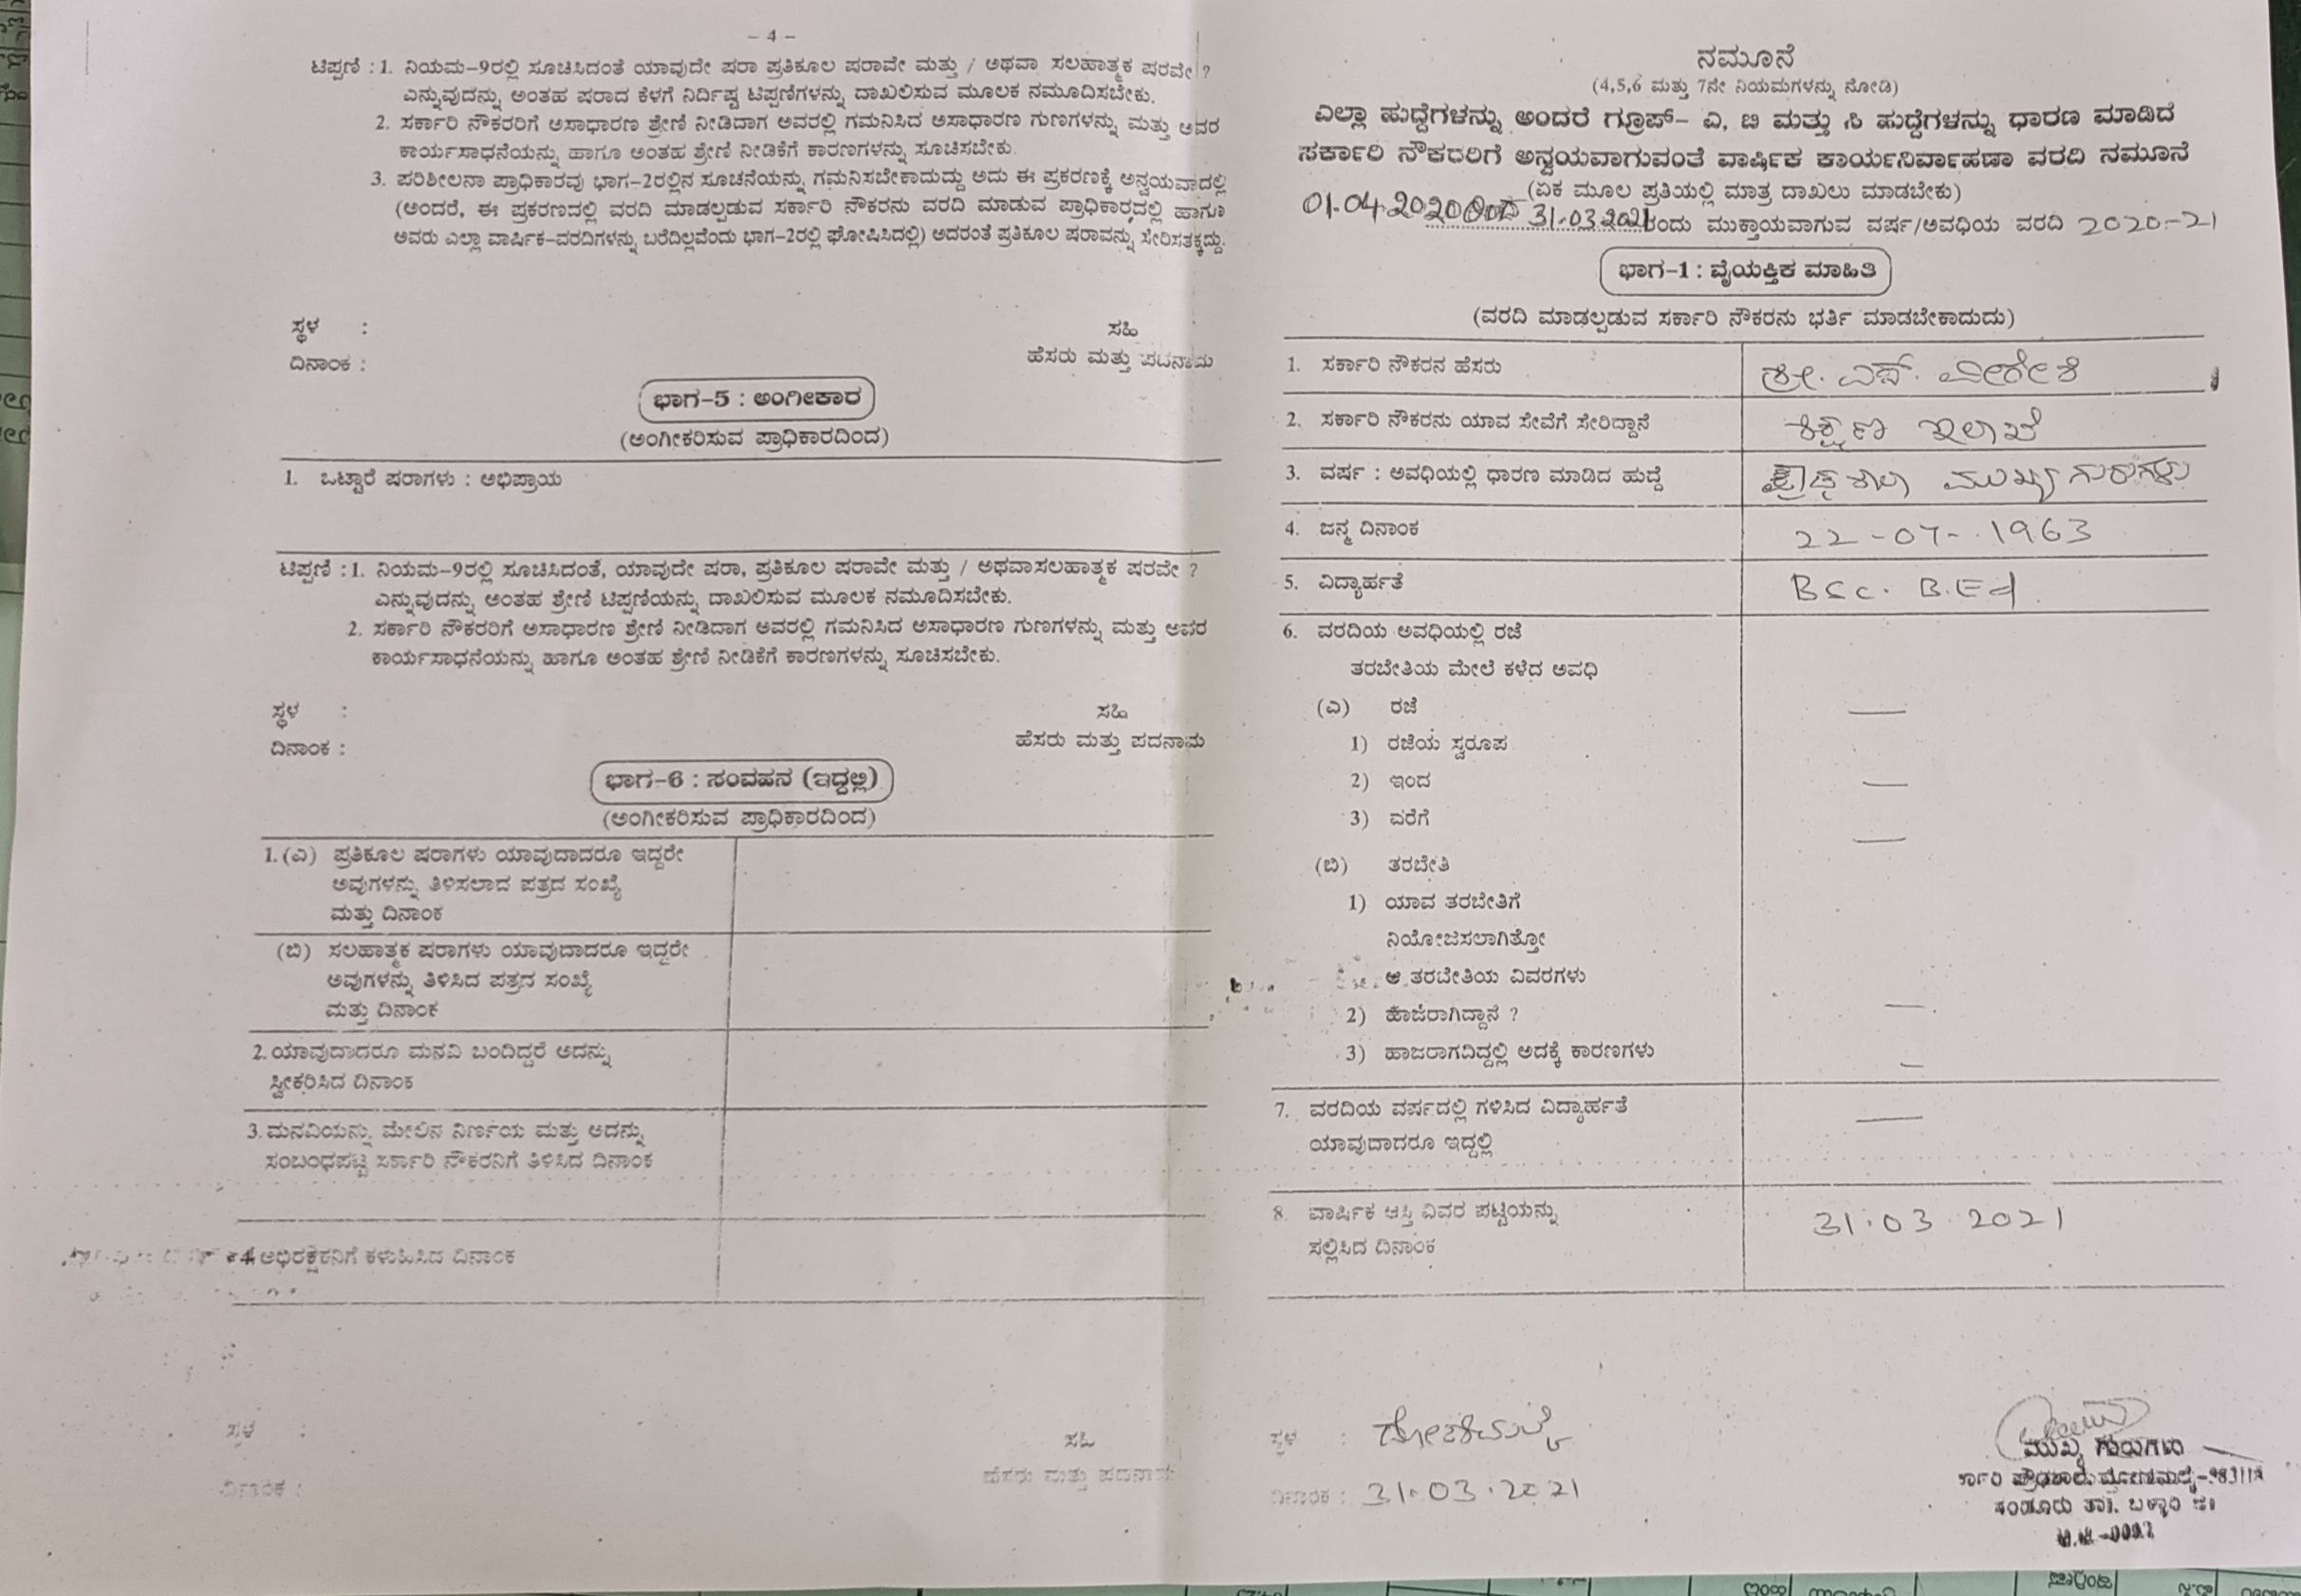 – 4 –
ಟಿಪ್ಪಣಿ : 1. ನಿಯಮ–9ರಲ್ಲಿ ಸೂಚಿಸಿದಂತೆ ಯಾವುದೇ ಷರಾ ಪ್ರತಿಕೂಲ ಷರಾವೇ ಮತ್ತು / ಅಥವಾ ಸಲಹಾತ್ಮಕ ಷರವೇ ?
ಎನ್ನುವುದನ್ನು ಅಂತಹ ಷರಾದ ಕೆಳಗೆ ನಿರ್ದಿಷ್ಟ ಟಿಪ್ಪಣಿಗಳನ್ನು ದಾಖಲಿಸುವ ಮೂಲಕ ನಮೂದಿಸಬೇಕು.
2. ಸರ್ಕಾರಿ ನೌಕರರಿಗೆ ಅಸಾಧಾರಣ ಶ್ರೇಣಿ ನೀಡಿದಾಗ ಅವರಲ್ಲಿ ಗಮನಿಸಿದ ಅಸಾಧಾರಣ ಗುಣಗಳನ್ನು ಮತ್ತು ಅವರ
ಕಾರ್ಯಸಾಧನೆಯನ್ನು ಹಾಗೂ ಅಂತಹ ಶ್ರೇಣಿ ನೀಡಿಕೆಗೆ ಕಾರಣಗಳನ್ನು ಸೂಚಿಸಬೇಕು.
3. ಪರಿಶೀಲನಾ ಪ್ರಾಧಿಕಾರವು ಭಾಗ–2ರಲ್ಲಿನ ಸೂಚನೆಯನ್ನು ಗಮನಿಸಬೇಕಾದುದ್ದು ಅದು ಈ ಪ್ರಕರಣಕ್ಕೆ ಅನ್ವಯವಾದಲ್ಲಿ
(ಅಂದರೆ, ಈ ಪ್ರಕರಣದಲ್ಲಿ ವರದಿ ಮಾಡಲ್ಪಡುವ ಸರ್ಕಾರಿ ನೌಕರನು ವರದಿ ಮಾಡುವ ಪ್ರಾಧಿಕಾರದಲ್ಲಿ ಹಾಗೂ
ಅವರು ಎಲ್ಲಾ ವಾರ್ಷಿಕ–ವರದಿಗಳನ್ನು ಬರೆದಿಲ್ಲವೆಂದು ಭಾಗ–2ರಲ್ಲಿ ಘೋಷಿಸಿದಲ್ಲಿ) ಅದರಂತೆ ಪ್ರತಿಕೂಲ ಷರಾವನ್ನು ಸೇರಿಸತಕ್ಕದ್ದು.
ಸ್ಥಳ : ಸಹಿ
ದಿನಾಂಕ : ಹೆಸರು ಮತ್ತು ಪದನಾಮ
ಭಾಗ–5 : ಅಂಗೀಕಾರ
(ಅಂಗೀಕರಿಸುವ ಪ್ರಾಧಿಕಾರದಿಂದ)
1. ಒಟ್ಟಾರೆ ಷರಾಗಳು : ಅಭಿಪ್ರಾಯ
ಟಿಪ್ಪಣಿ : 1. ನಿಯಮ–9ರಲ್ಲಿ ಸೂಚಿಸಿದಂತೆ, ಯಾವುದೇ ಷರಾ, ಪ್ರತಿಕೂಲ ಷರಾವೇ ಮತ್ತು / ಅಥವಾಸಲಹಾತ್ಮಕ ಷರವೇ ?
ಎನ್ನುವುದನ್ನು ಅಂತಹ ಶ್ರೇಣಿ ಟಿಪ್ಪಣಿಯನ್ನು ದಾಖಲಿಸುವ ಮೂಲಕ ನಮೂದಿಸಬೇಕು.
2. ಸರ್ಕಾರಿ ನೌಕರರಿಗೆ ಅಸಾಧಾರಣ ಶ್ರೇಣಿ ನೀಡಿದಾಗ ಅವರಲ್ಲಿ ಗಮನಿಸಿದ ಅಸಾಧಾರಣ ಗುಣಗಳನ್ನು ಮತ್ತು ಅವರ
ಕಾರ್ಯಸಾಧನೆಯನ್ನು ಹಾಗೂ ಅಂತಹ ಶ್ರೇಣಿ ನೀಡಿಕೆಗೆ ಕಾರಣಗಳನ್ನು ಸೂಚಿಸಬೇಕು.
ಸ್ಥಳ : ಸಹಿ
ದಿನಾಂಕ : ಹೆಸರು ಮತ್ತು ಪದನಾಮ
ಭಾಗ–6 : ಸಂವಹನ (ಇದ್ದಲ್ಲಿ)
(ಅಂಗೀಕರಿಸುವ ಪ್ರಾಧಿಕಾರದಿಂದ)
1. (ಎ) ಪ್ರತಿಕೂಲ ಷರಾಗಳು ಯಾವುದಾದರೂ ಇದ್ದರೇ
ಅವುಗಳನ್ನು ತಿಳಿಸಲಾದ ಪತ್ರದ ಸಂಖ್ಯೆ
ಮತ್ತು ದಿನಾಂಕ
(ಬಿ) ಸಲಹಾತ್ಮಕ ಷರಾಗಳು ಯಾವುದಾದರೂ ಇದ್ದರೇ
ಅವುಗಳನ್ನು ತಿಳಿಸಿದ ಪತ್ರದ ಸಂಖ್ಯೆ
ಮತ್ತು ದಿನಾಂಕ
2. ಯಾವುದಾದರೂ ಮನವಿ ಬಂದಿದ್ದರೆ ಅದನ್ನು
ಸ್ವೀಕರಿಸಿದ ದಿನಾಂಕ
3. ಮನವಿಯನ್ನು ಮೇಲಿನ ನಿರ್ಣಯ ಮತ್ತು ಅದನ್ನು
ಸಂಬಂಧಪಟ್ಟ ಸರ್ಕಾರಿ ನೌಕರನಿಗೆ ತಿಳಿಸಿದ ದಿನಾಂಕ
4 ಅಭಿರಕ್ಷಕನಿಗೆ ಕಳುಹಿಸಿದ ದಿನಾಂಕ
ಸ್ಥಳ : ಸಹಿ
ದಿನಾಂಕ : ಹೆಸರು ಮತ್ತು ಪದನಾಮ
ನಮೂನೆ
(4,5,6 ಮತ್ತು 7ನೇ ನಿಯಮಗಳನ್ನು ನೋಡಿ)
ಎಲ್ಲಾ ಹುದ್ದೆಗಳನ್ನು ಅಂದರೆ ಗ್ರೂಪ್– ಎ, ಬಿ ಮತ್ತು ಸಿ ಹುದ್ದೆಗಳನ್ನು ಧಾರಣ ಮಾಡಿದ
ಸರ್ಕಾರಿ ನೌಕರರಿಗೆ ಅನ್ವಯವಾಗುವಂತೆ ವಾರ್ಷಿಕ ಕಾರ್ಯನಿರ್ವಾಹಣಾ ವರದಿ ನಮೂನೆ
(ಏಕ ಮೂಲ ಪ್ರತಿಯಲ್ಲಿ ಮಾತ್ರ ದಾಖಲು ಮಾಡಬೇಕು)
01.04.2020 31.03.2021 ರಂದು ಮುಕ್ತಾಯವಾಗುವ ವರ್ಷ/ಅವಧಿಯ ವರದಿ 2020-21
ಭಾಗ–1 : ವೈಯಕ್ತಿಕ ಮಾಹಿತಿ
(ವರದಿ ಮಾಡಲ್ಪಡುವ ಸರ್ಕಾರಿ ನೌಕರನು ಭರ್ತಿ ಮಾಡಬೇಕಾದುದು)
1. ಸರ್ಕಾರಿ ನೌಕರನ ಹೆಸರು ಶ್ರೀ. ಎಸ್. ವೀರೇಶಿ
2. ಸರ್ಕಾರಿ ನೌಕರನು ಯಾವ ಸೇವೆಗೆ ಸೇರಿದ್ದಾನೆ ಶಿಕ್ಷಣ ಇಲಾಖೆ
3. ವರ್ಷ : ಅವಧಿಯಲ್ಲಿ ಧಾರಣ ಮಾಡಿದ ಹುದ್ದೆ ಪ್ರೌಢಶಾಲಾ ಮುಖ್ಯಗುರುಗಳು
4. ಜನ್ಮ ದಿನಾಂಕ 22-07-1963
5. ವಿದ್ಯಾರ್ಹತೆ BSc. B.Ed
6. ವರದಿಯ ಅವಧಿಯಲ್ಲಿ ರಜೆ
ತರಬೇತಿಯ ಮೇಲೆ ಕಳೆದ ಅವಧಿ
(ಎ) ರಜೆ —
1) ರಜೆಯ ಸ್ವರೂಪ
2) ಇಂದ —
3) ವರೆಗೆ —
(ಬಿ) ತರಬೇತಿ
1) ಯಾವ ತರಬೇತಿಗೆ
ನಿಯೋಜಿಸಲಾಗಿತ್ತೋ
ಆ ತರಬೇತಿಯ ವಿವರಗಳು
2) ಹಾಜರಾಗಿದ್ದಾನೆ ? —
3) ಹಾಜರಾಗದಿದ್ದಲ್ಲಿ ಅದಕ್ಕೆ ಕಾರಣಗಳು —
7. ವರದಿಯ ವರ್ಷದಲ್ಲಿ ಗಳಿಸಿದ ವಿದ್ಯಾರ್ಹತೆ —
ಯಾವುದಾದರೂ ಇದ್ದಲ್ಲಿ
8. ವಾರ್ಷಿಕ ಆಸ್ತಿ ವಿವರ ಪಟ್ಟಿಯನ್ನು 31.03.2021
ಸಲ್ಲಿಸಿದ ದಿನಾಂಕ
ಸ್ಥಳ :
ದಿನಾಂಕ : 31.03.2021
ಮುಖ್ಯ ಗುರುಗಳು